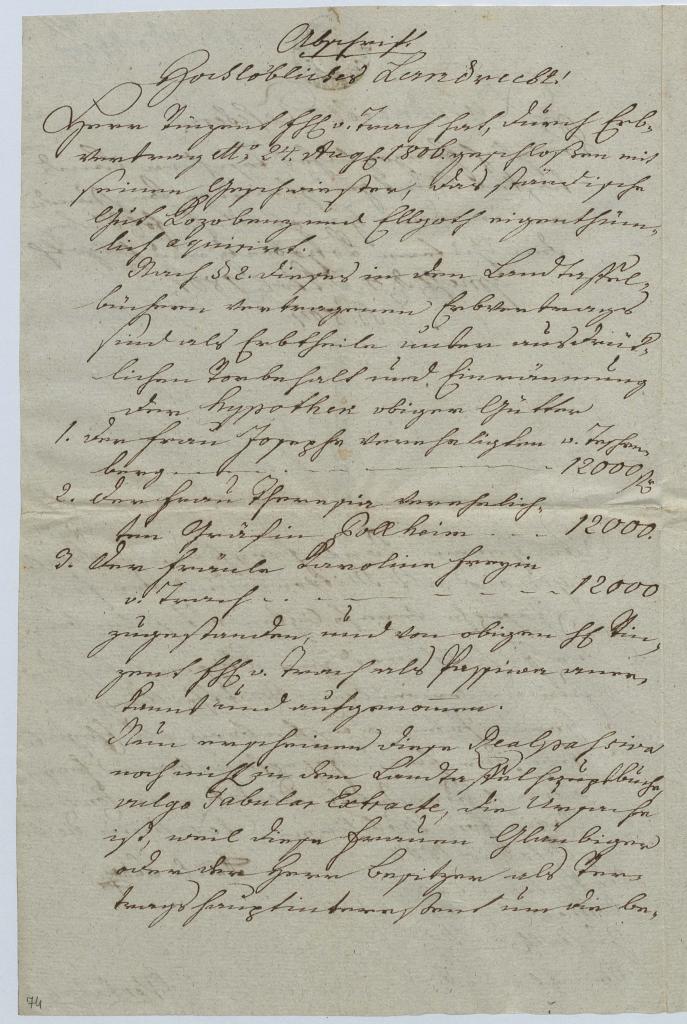 Abschrift.
Hochlöbliches Landrecht!
Herr Vinzent Fhh. v. Trach hat, durch Erb-
vertrag 24. Aug 1806. geschloßen mit
seinen Geschwister, das ständische
Gut Kozobenz und Ellgoth eigenthüm-
lich aquirirt.
Nach §. 2. dieses in den Landtafel-
büchern vertragenen Erbvertrags
sind als Erbtheile unter ausdrük-
lichen Vorbehalt und Einräumung
der Hypothek obiger Gütter
1. der Frau Josepha verehelichten v.
berg - - - 12000
2. der Frau Theresia verehelich-
ten Gräfin Pollheim - - - 12000.
3. der Fräule Karoline Freyin
v. Trach - - - 12000
zugestanden, und von obigen H Vin-
zent Fhh. v. Trach als Passiva aner-
kannt und aufgenommen.
Nun erscheinen diese Realpassiva
noch nicht in dem Landtafelhauptbuche,
vulgo Tabular Extracte, die Ursache
ist, weil diese Frauen Gläubiger
oder der Herr Besitzer als Ver-
tragshauptinteressent um die be-
74